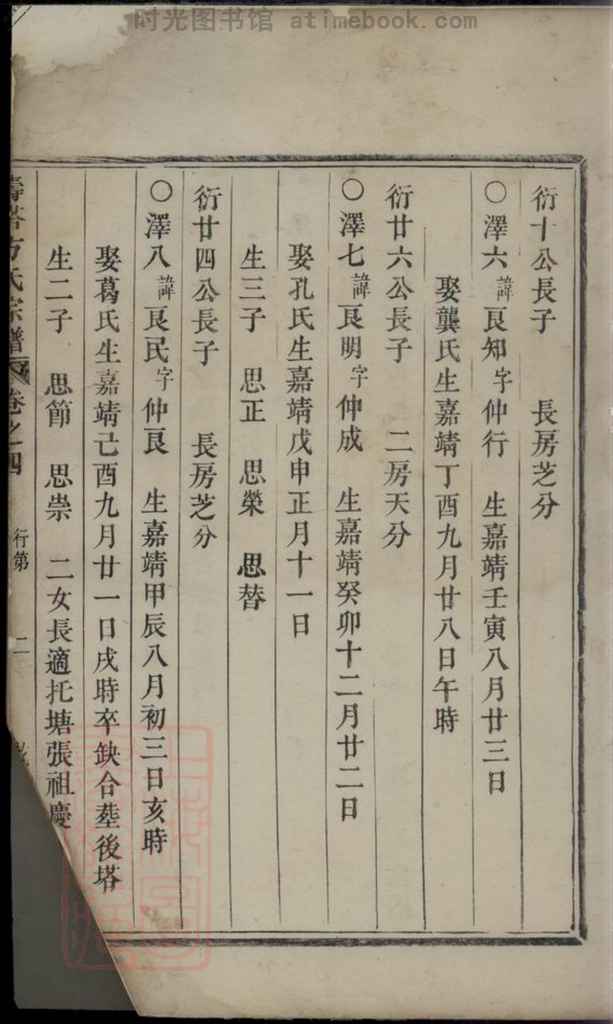 时光图书馆 atimebook.com
衍十公長子 長房芝分
○澤六諱良知字仲行 生嘉靖壬寅八月廿三日
娶龔氏生嘉靖丁酉九月廿八日午時
衍廿六公長子 二房天分
○澤七諱良明字仲成 生嘉靖癸卯十二月廿二日
娶孔氏生嘉靖戊申正月十一日
生三子 思正 思榮 思替
衍廿四公長子 長房芝分
○澤八諱良民字仲良 生嘉靖甲辰八月初三日亥時
娶葛氏生嘉靖己酉九月廿一日戌時卒缺合塟後塔
生二子 思節 思崇 二女長適托塘張祖慶
方氏宗譜 卷之四 行第 二